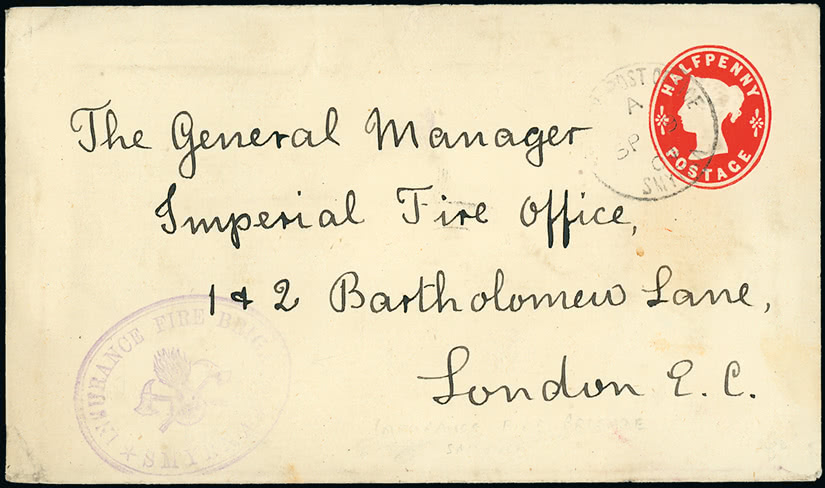 HALFPENNY
POSTAGE
POST
A
SP
SMY
The General Manager
Imperial Fire Office,
1 & 2 Bartholomew Lane,
London E. C.
INSURANCE FIRE BRIG
SMY
INSURANCE FIRE BRIGADE